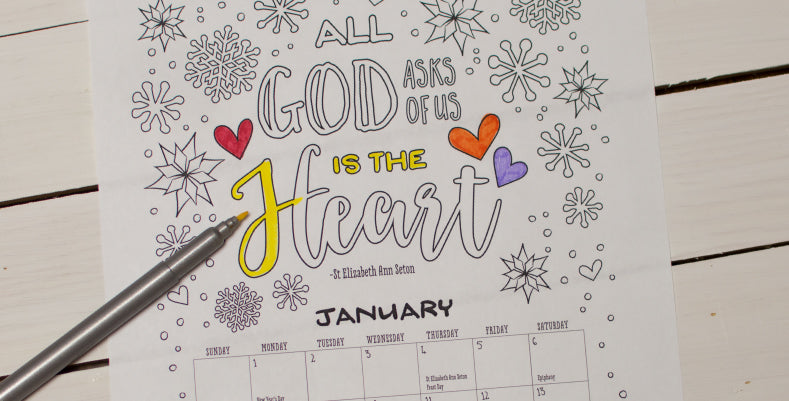 ALL
GOD ASKS OF US
IS THE
Heart
-St Elizabeth Ann Seton
JANUARY
SUNDAY MONDAY TUESDAY WEDNESDAY THURSDAY FRIDAY SATURDAY
1 2 3 4 5 6
New Year's Day St Elizabeth Ann Seton Feast Day Epiphany
11 12 13